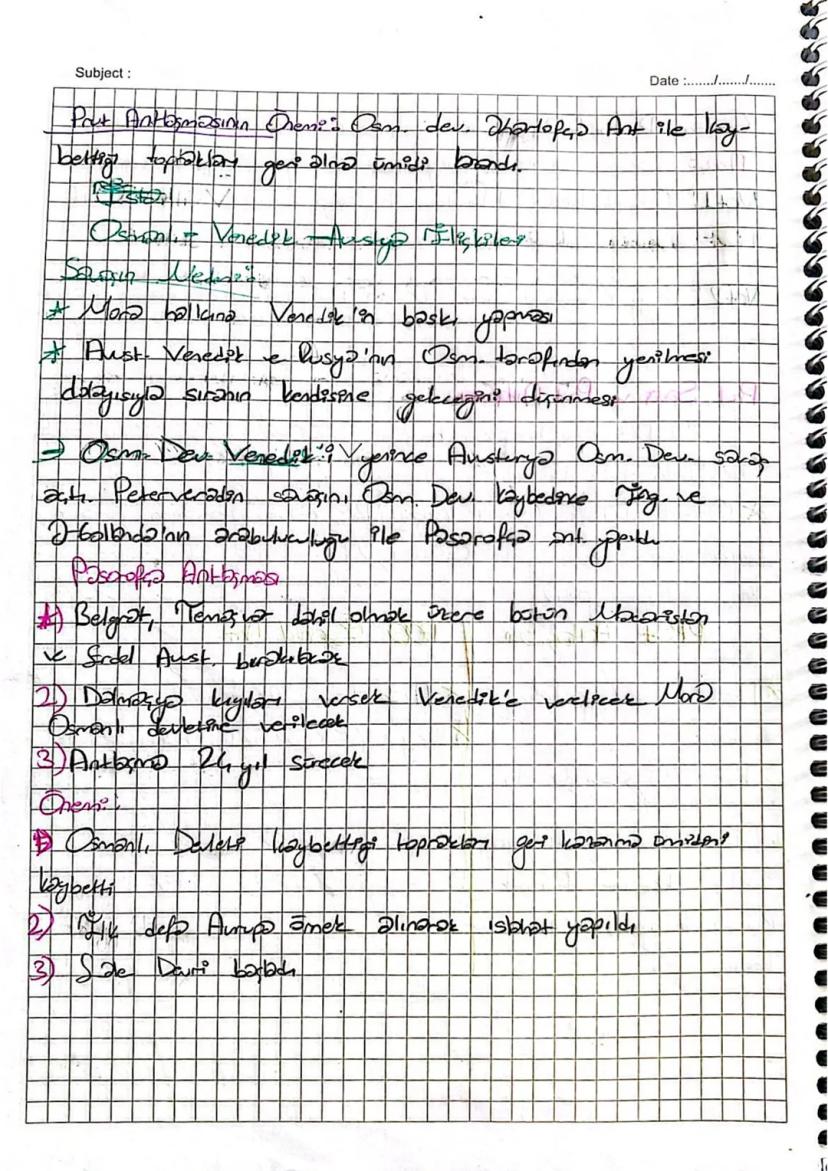 Subject :
Date :......./......./.......
Prut Antlaşmasının Önemi: Osm. dev. Karlofça Ant ile kay-
bettiği toprakları geri alma ümidi
Osmanlı - Venedik - Avusturya İlişkileri
Savaşın Nedeni:
* Mora halkına Venedik'in baskı yapması
* Aust. Venedik ve Rusya'nın Osm. tarafından yenilmesi
dolayısıyla sıranın kendisine geleceğini düşünmesi
→ Osm. Dev. Venedik'i yenince Austurya Osm. Dev. savaş
açtı. Petervaradin savaşını Osm. Dev. kaybedince İng. ve
Hollanda'nın arabuluculuğu ile Pasarofça ant. yapıldı
Pasarofça Antlaşması
1) Belgrat, Temaşvar dahil olmak üzere bütün Macaristan
ve Erdel Aust. bırakılacak
2) Dalmaçya kıyıları Venedik'e verilicek Mora
Osmanlı devletine verilecek
3) Antlaşma 24 yıl sürecek
Önemi:
1) Osmanlı Devleti kaybettiği toprakları geri kazanma ümidini
kaybetti
2) İlk defa Avrupa örnek alınarak ıslahat yapıldı
3) Lale Devri başladı